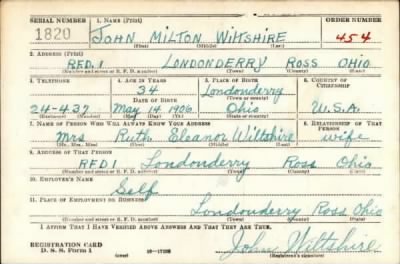 SERIAL NUMBER 1. NAME (Print) ORDER NUMBER
1820 JOHN MILTON WILTSHIRE 454
(First) (Middle) (Last)
2. ADDRESS (Print)
RFD. 1 LONDONDERRY ROSS OHIO
(Number and street or R. F. D. number) (Town) (County) (State)
3. TELEPHONE 4. AGE IN YEARS 5. PLACE OF BIRTH 6. COUNTRY OF CITIZENSHIP
34 Londonderry
DATE OF BIRTH (Town or county)
24-437 May 14 1906 Ohio U.S.A.
(Mo.) (Day) (Yr.) (State or country)
7. NAME OF PERSON WHO WILL ALWAYS KNOW YOUR ADDRESS 8. RELATIONSHIP OF THAT PERSON
Mrs Ruth Eleanor Wiltshire wife
(Mr., Mrs., Miss) (First) (Middle) (Last)
9. ADDRESS OF THAT PERSON
RFD 1 Londonderry Ross Ohio
(Number and street or R. F. D. number) (Town) (County) (State)
10. EMPLOYER'S NAME
Self
11. PLACE OF EMPLOYMENT OR BUSINESS
Londonderry Ross Ohio
(Number and street or R. F. D. number) (Town) (County) (State)
I AFFIRM THAT I HAVE VERIFIED ABOVE ANSWERS AND THAT THEY ARE TRUE.
REGISTRATION CARD
D. S. S. Form 1 (over) John Wiltshire
(Registrant's signature)